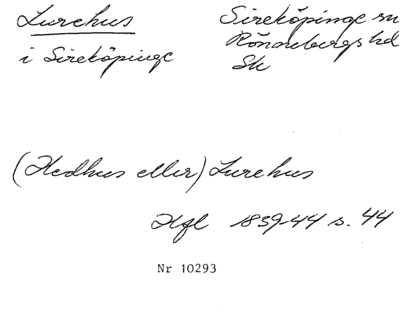 Lurehus
i Sireköpinge
Sireköpinge sn
Rönnebergs hd
Sk
(Hedhus eller) Lurehus
Hfl 1839-44 s. 44
Nr 10293